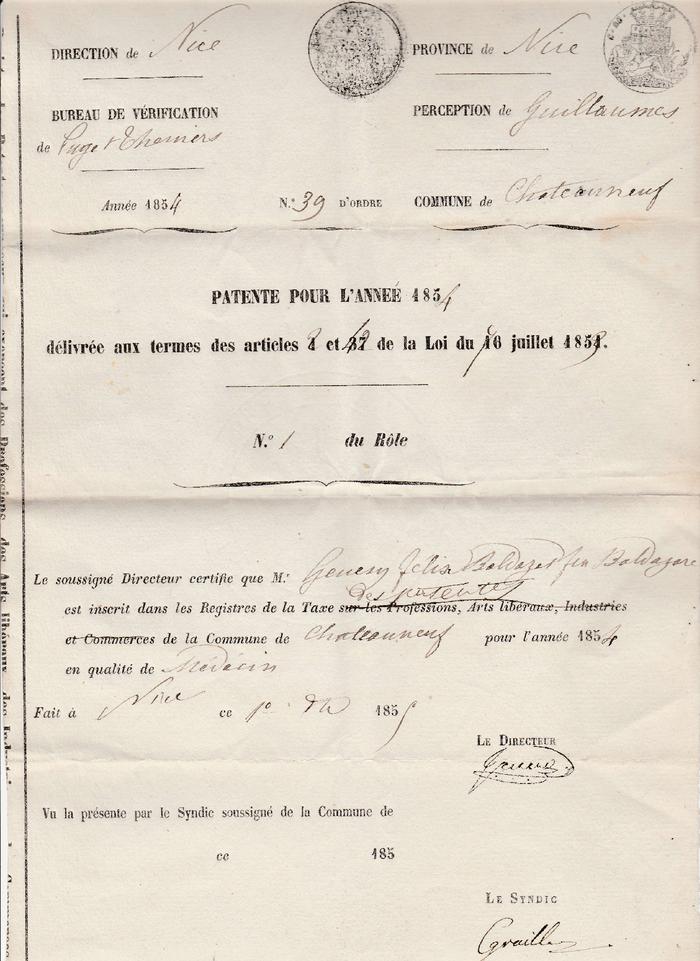 DIRECTION de Nice
PROVINCE de Nice
BUREAU DE VÉRIFICATION
de Puget Theniers
PERCEPTION de Guillaumes
Année 1854
N.º 39 D'ORDRE
COMMUNE de Chateauneuf
PATENTE POUR L'ANNEÉ 1854
délivrée aux termes des articles et 42 de la Loi du 7 juillet 1853.
N.º 1 du Rôle
Le soussigné Directeur certifie que M.r Felix Baldazar feu Baldazare
des patentes
est inscrit dans les Registres de la Taxe sur les Professions, Arts libéraux, Industries
et Commerces de la Commune de Chateauneuf pour l'année 1854
en qualité de Médecin
Fait à Nice ce 1º 1855
LE DIRECTEUR
Vu la présente par le Syndic soussigné de la Commune de
ce 185
LE SYNDIC